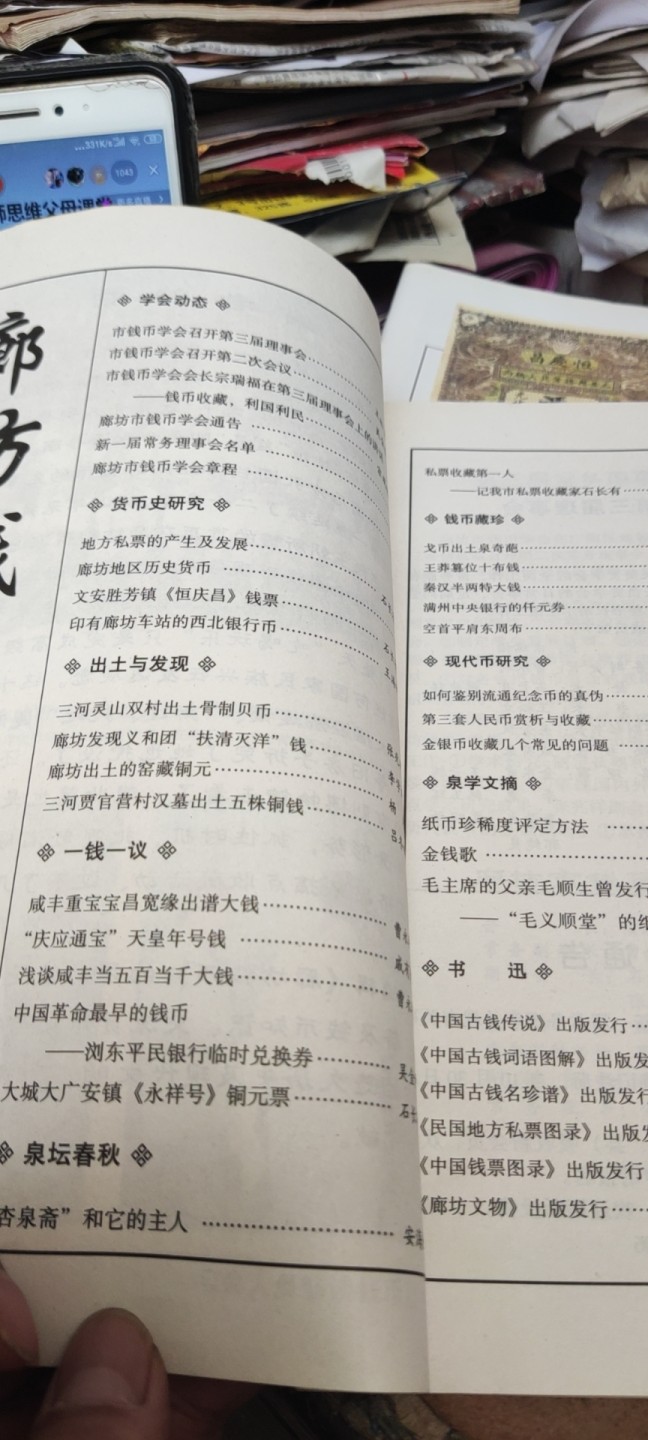 331K/s
1043
师思维父母课堂
廊
坊
钱
学会动态
市钱币学会召开第三届理事会
市钱币学会召开第二次会议
市钱币学会会长宗瑞福在第三届理事会上的讲话
——钱币收藏，利国利民
廊坊市钱币学会通告
新一届常务理事会名单
廊坊市钱币学会章程
货币史研究
地方私票的产生及发展
廊坊地区历史货币
文安胜芳镇《恒庆昌》钱票
印有廊坊车站的西北银行币
出土与发现
三河灵山双村出土骨制贝币
廊坊发现义和团“扶清灭洋”钱
廊坊出土的窑藏铜元
三河贾官营村汉墓出土五株铜钱
一钱一议
咸丰重宝宝昌宽缘出谱大钱
“庆应通宝”天皇年号钱
浅谈咸丰当五百当千大钱
中国革命最早的钱币
——浏东平民银行临时兑换券
大城大广安镇《永祥号》铜元票
泉坛春秋
杏泉斋”和它的主人
昌庆恒
私票收藏第一人
——记我市私票收藏家石长有
钱币藏珍
戈币出土泉奇葩
王莽篡位十布钱
秦汉半两特大钱
满州中央银行的仟元券
空首平肩东周布
现代币研究
如何鉴别流通纪念币的真伪
第三套人民币赏析与收藏
金银币收藏几个常见的问题
泉学文摘
纸币珍稀度评定方法
金钱歌
毛主席的父亲毛顺生曾发行
——“毛义顺堂”的纸
书 迅
《中国古钱传说》出版发行
《中国古钱词语图解》出版发
《中国古钱名珍谱》出版发行
《民国地方私票图录》出版发
《中国钱票图录》出版发行
《廊坊文物》出版发行